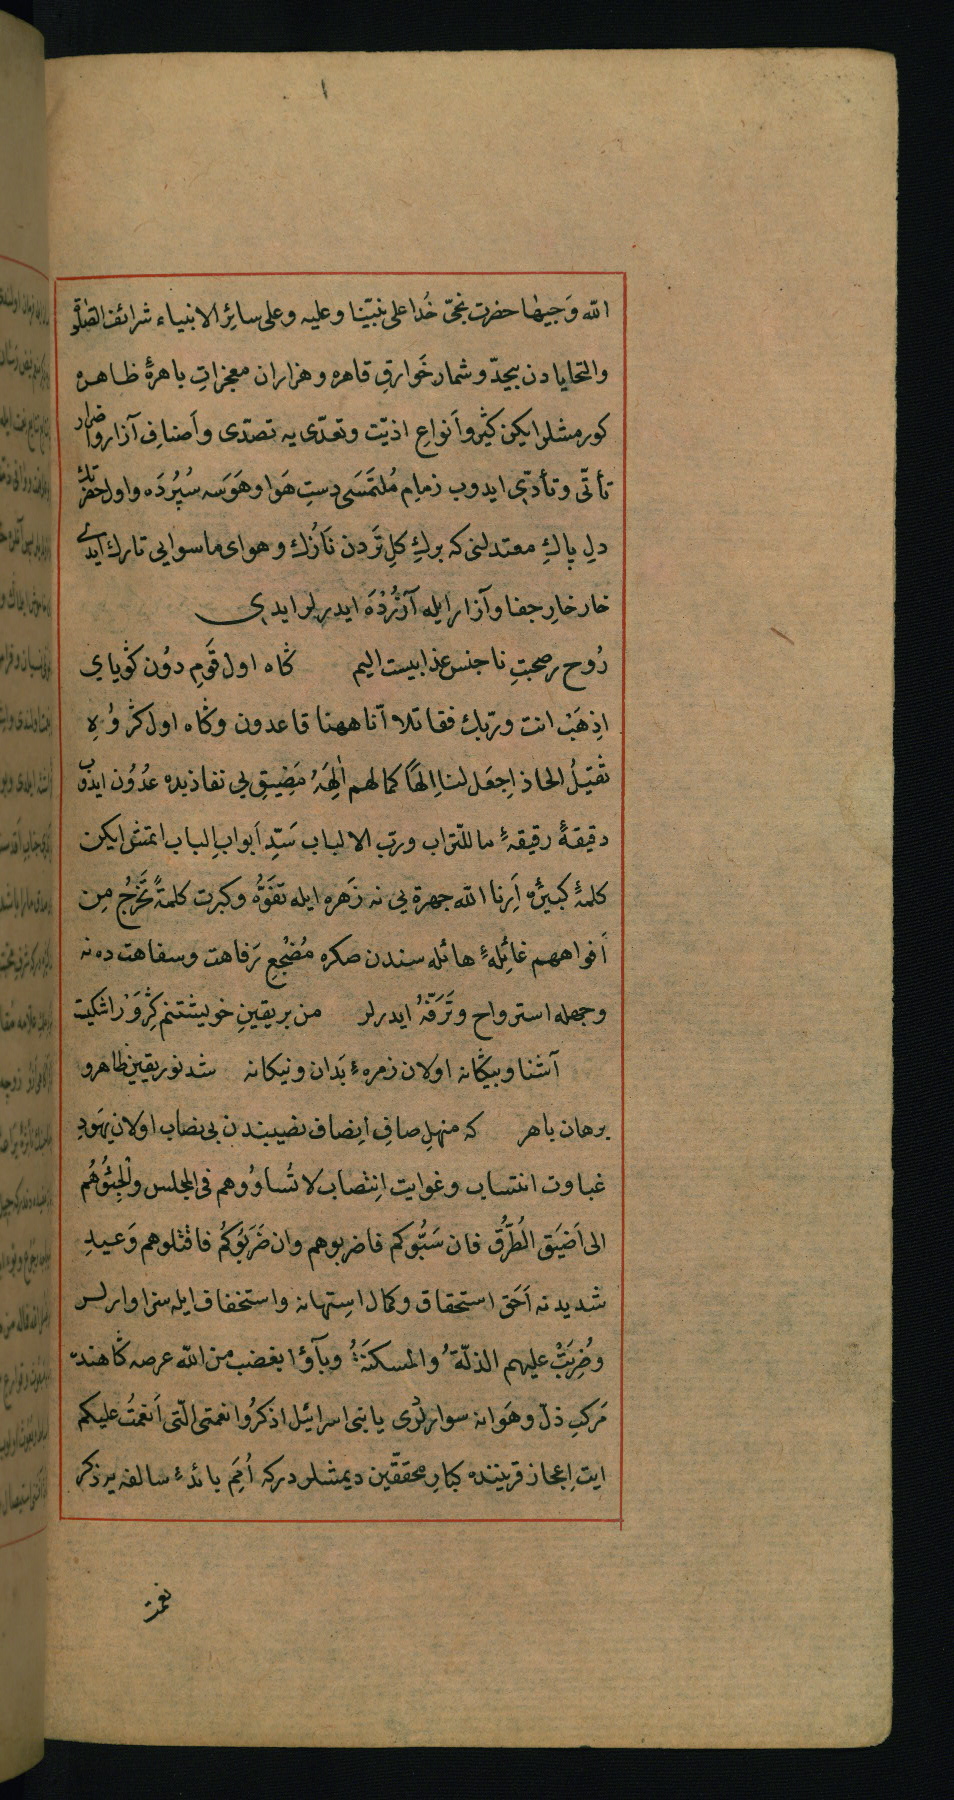 الله وَجيهًا حضرت نجىّ خُدا على نبيّنا وعليه وعلى سائر الانبياء شرائف الصلوة
والتحايا دن بيحدّ و شمار خَوارقِ قاهره و هزاران معجزاتِ باهرهٔ ظاهره
كورمشلر ايكن كثير وأنواعِ اذيّت وتعدّى يه تصدّى وأصنافِ آزار واضرار
تأتّى وتأذّى ايدوب زمامِ مُلتَمَسَى دستِ هَوا وهَوَسَه سُپُردَه واول حضرتك
دلِ پاكِ معتدلنى كه بركِ كلِ تَردن نَازُك و هواى ماسوايى تارك ايدى
خار خارِ جفا وآزار ايله آزُردَه ايدرلر ايدى
رُوح رصحبتِ ناجنس عذابيست اليم كاه اول قَومِ دوُن كوياى
اِذهَبْ انت وربّك فقاتلا انّا ههنا قاعدون وكاه اول كروُهِ
ثقيلُ الحاذ اِجعَل لنا اِلهًا كما لهم اٰلِهَةٌ مَضِيقِ بى نفاذيده عدُوُن ايدوب
دقيقهٔ رقيقهٔ ما للتراب وربّ الالباب سَدِّ اَبوابِ الباب اتمشى ايكن
كلمهٔ كبيرهٔ اَرِنا الله جهرة يى نه زَهره ايله تفَوُّه وكبرت كلمةً تَخرُجُ مِن
اَفواههم غائِلهٔ هائله سندن صكره مُضْجعِ رَفاهت وسفاهت ده نه
وجهله استرواح وتَرَفّه ايدرلر من بريقينِ خويشتنم كِرْ وَرْاشكيت
آشنا و بيكانه اولان زمرهٔ بَدان ونيكانه شد نور يقين ظاهر و
برهان باهر كه منهلِ صافِ اِنصاف نصيبندن بى نصاب اولان يَهودِ
غباوت انتساب وغوايت اِنتصاب لا تُساوُوهم فى المجلس والجِئُوهُم
الى اَضيَقِ الطُرُق فان سَبُّوكم فاضربوهم وان ضَرَبُوكُم فاقتلوهم وَعيدِ
شديدنه اَحَق استحقاق وكمال اِستِهانه واستخفاف ايله سزاوارلر
وضُرِبَتْ عليهم الذلّةُ والمسكنَةُ وبآؤا بغضب من الله عرصه كاهنده
مَركبِ ذلّ وهَوانه سوارلردُى يا بنى اسرائيل اذكرُوا نعمتى الّتى اَنعمتُ عليكم
ايت اِعجاز قريننده كبارِ محقّقين ديمشلردركه اُمَمِ بائدهٔ سالفه يه ذكر
نعمت